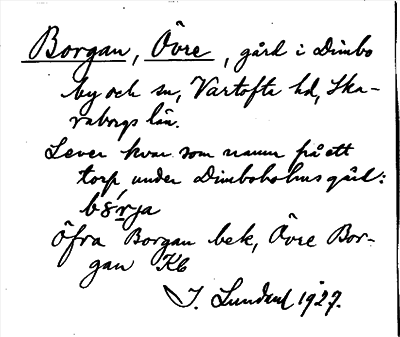 Borgan, Övre, gård i Dimbo
by och sn, Vartofta hd, Ska-
raborgs län.
Lever kvar som namn på ett
torp under Dimboholms gård:
Öfra Borgan bek, Övre Bor-
gan Kb
J. Lundahl 1927.